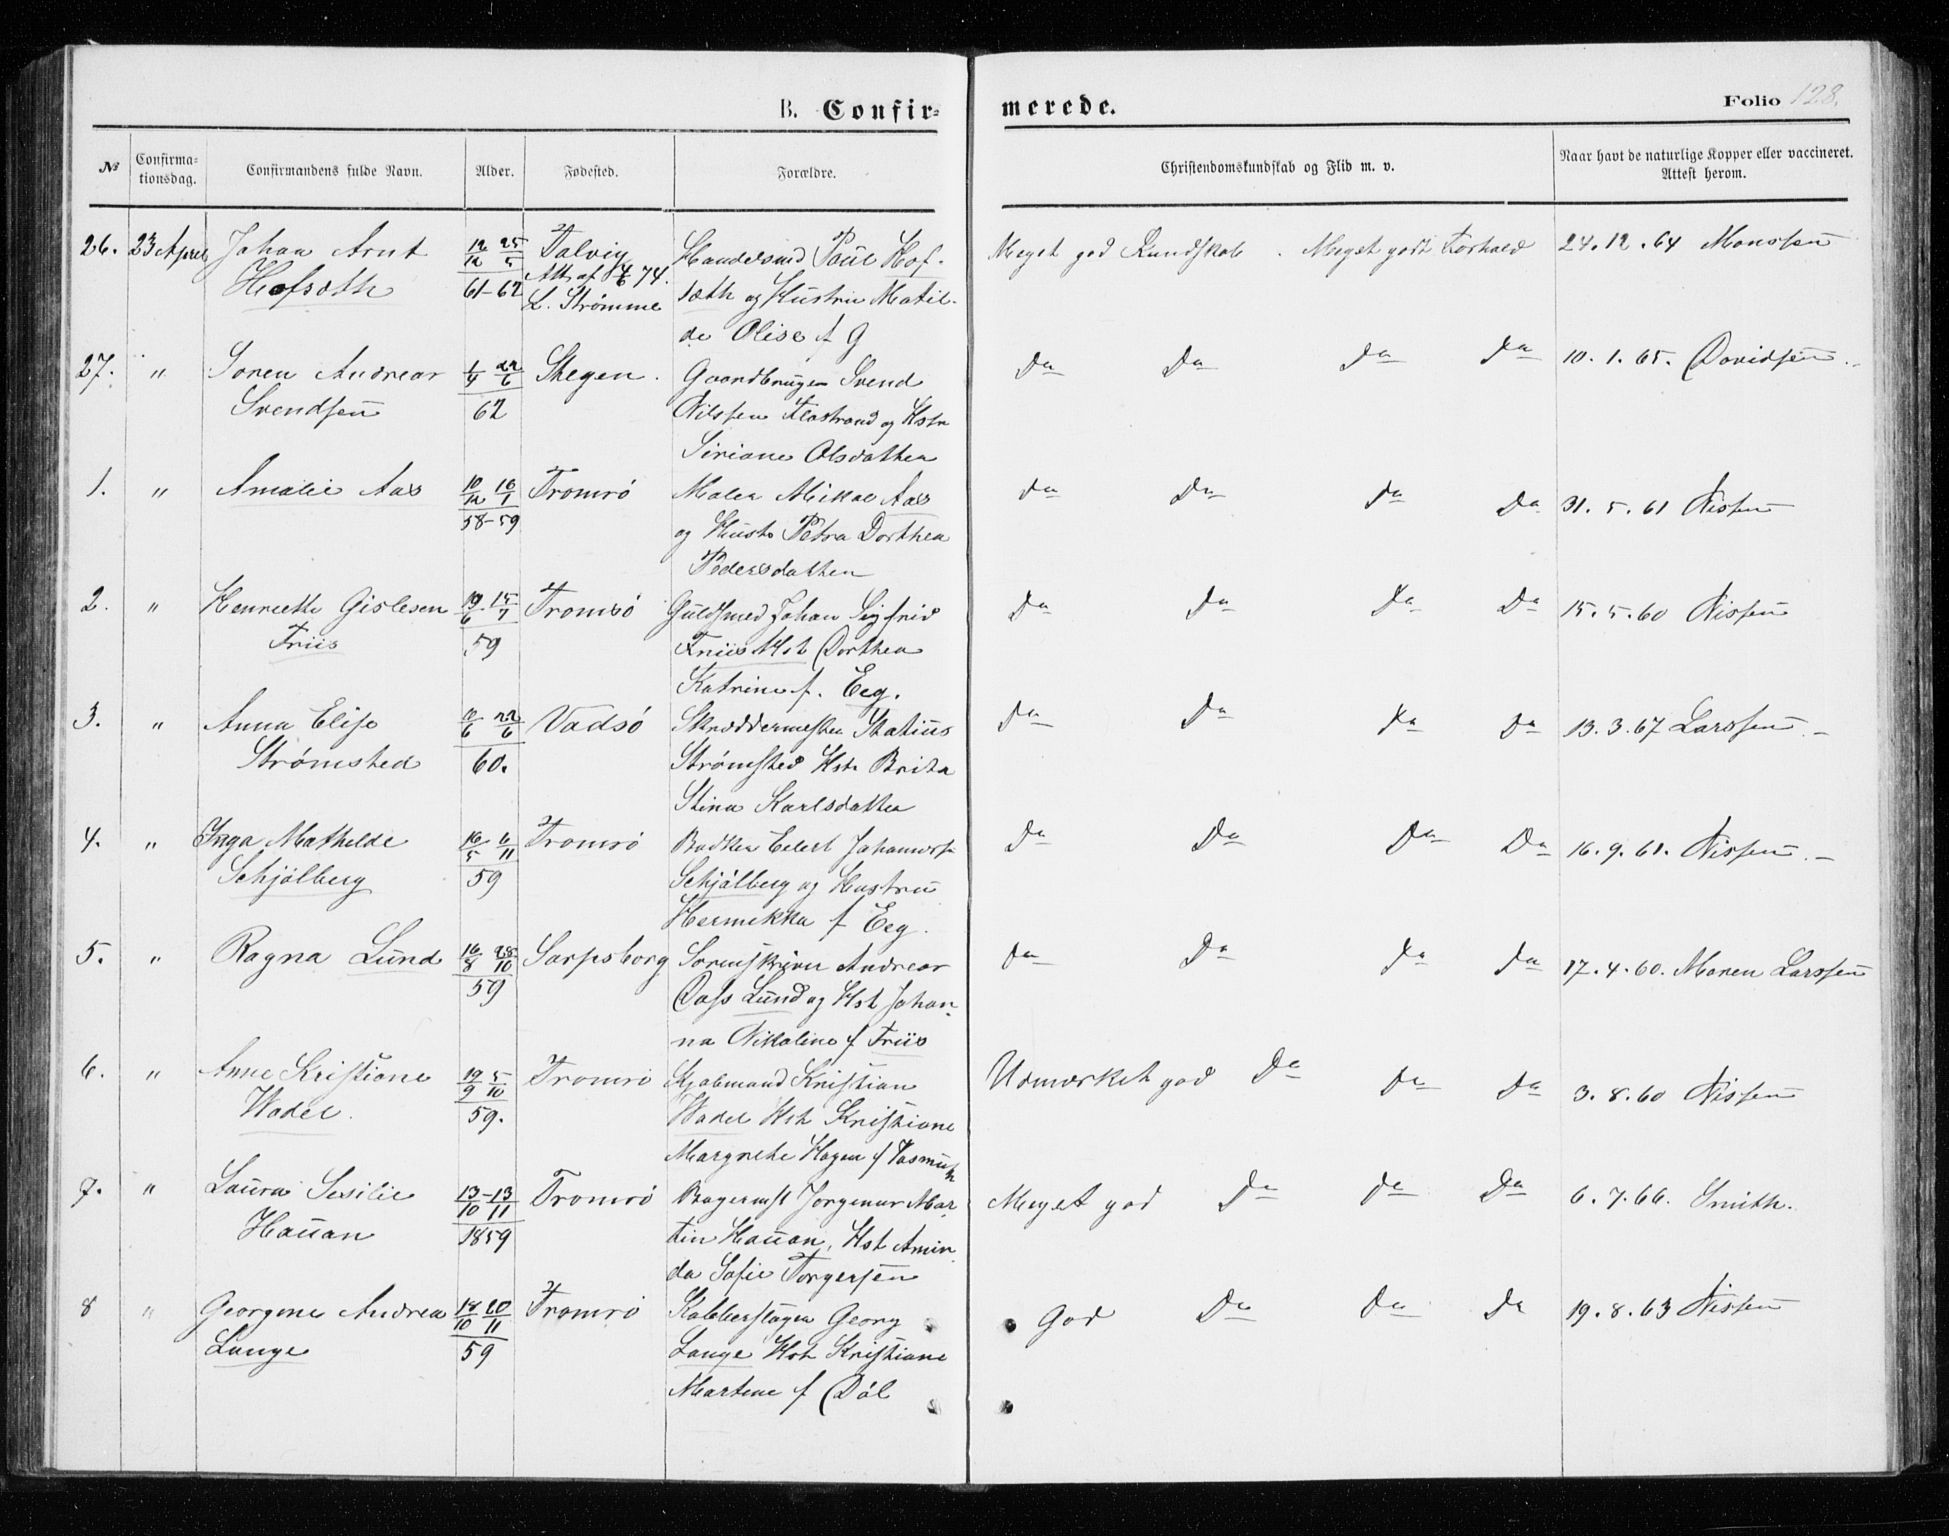 B. Confir-
merede.
Folio 128.
№ Confirma-tionsdag. Confirmandens fulde Navn. Alder. Fødested. Forældre. Christendomskundskab og Flid m. v. Naar havt de naturlige Kopper eller vaccineret. Attest herom.
26. 23 April Johan Arnt 12/12 25/5 Talvig Handelsmd Paul Hof- Meget god Kundskab . Meget godt Forhold 24.12.64 Monssen
Hofsæth 61-62 Att af 74. sæth og Hustru Matil-
L. Strømme de Olise f G
27. " Søren Andreas 1/4 22/6 Stegen. Gaardbruger Svend Do Do Do Do 10.1.65. Davidsen
Svendsen 62 Nilssen Flastrand og Hstr
Siriane Olsdatter
1. " Amalie Aas 10/12 16/1 Tromsö Maler Mikal Aas Do Do Do Do 31.5.61 Nissen
58-59 og Hustr Petra Dorthea
Pedersdatter
2. " Henriette Gislesen 19/6 15/7 Tromsö Guldsmed Johan Sigfrid Do Do Do Do 15.5.60 Nissen
Friis 59 Friis Hst Dorthea
Katrine f. Eeg.
3. " Anna Elise 22/6 Vadsö Skræddermester Statius Do Do Do Do 13.3.67 Larssen
Strømsted 60. Strømsted Hst Brita
Stina Karlsdatter
4. " Inga Mathilde 16/5 6/11 Tromsö Bødker Eilert Johannes Do Do Do Do 16.9.61. Nissen
Schjölberg 59 Schjölberg og Hustru
Hermikka f Eeg.
5. " Ragna Lund 16/8 28/10 Sarpsborg Sorenskriver Andreas Do Do Do Do 17.4.60. Maren Larssen
59 Dass Lund og Hst Johan-
na Nikoline f Friis
6. " Anne Kristiane 19/9 5/10 Tromsö Kjøbmand Kristian Udmærket god Do Do Do 3.8.60 Nissen
Wadel. 59. Wadel Hst Kristiane
Margrete Hagen f Vasmuth
7. " Laura Sesilie 13/10-13/11 Tromsö Bagermst Jørgenus Mar- Meget god Do Do Do 6.7.66. Smith.
Hauan 1859 tin Hauan, Hst Amin-
da Sofie Torgersen
8 " Georgine Andrea 18/10 20/11 Tromsö Kobberslager Georg God Do Do Do 19.8.63 Nissen
Lange 59 Lange Hst Kristiane
Martine f Döl